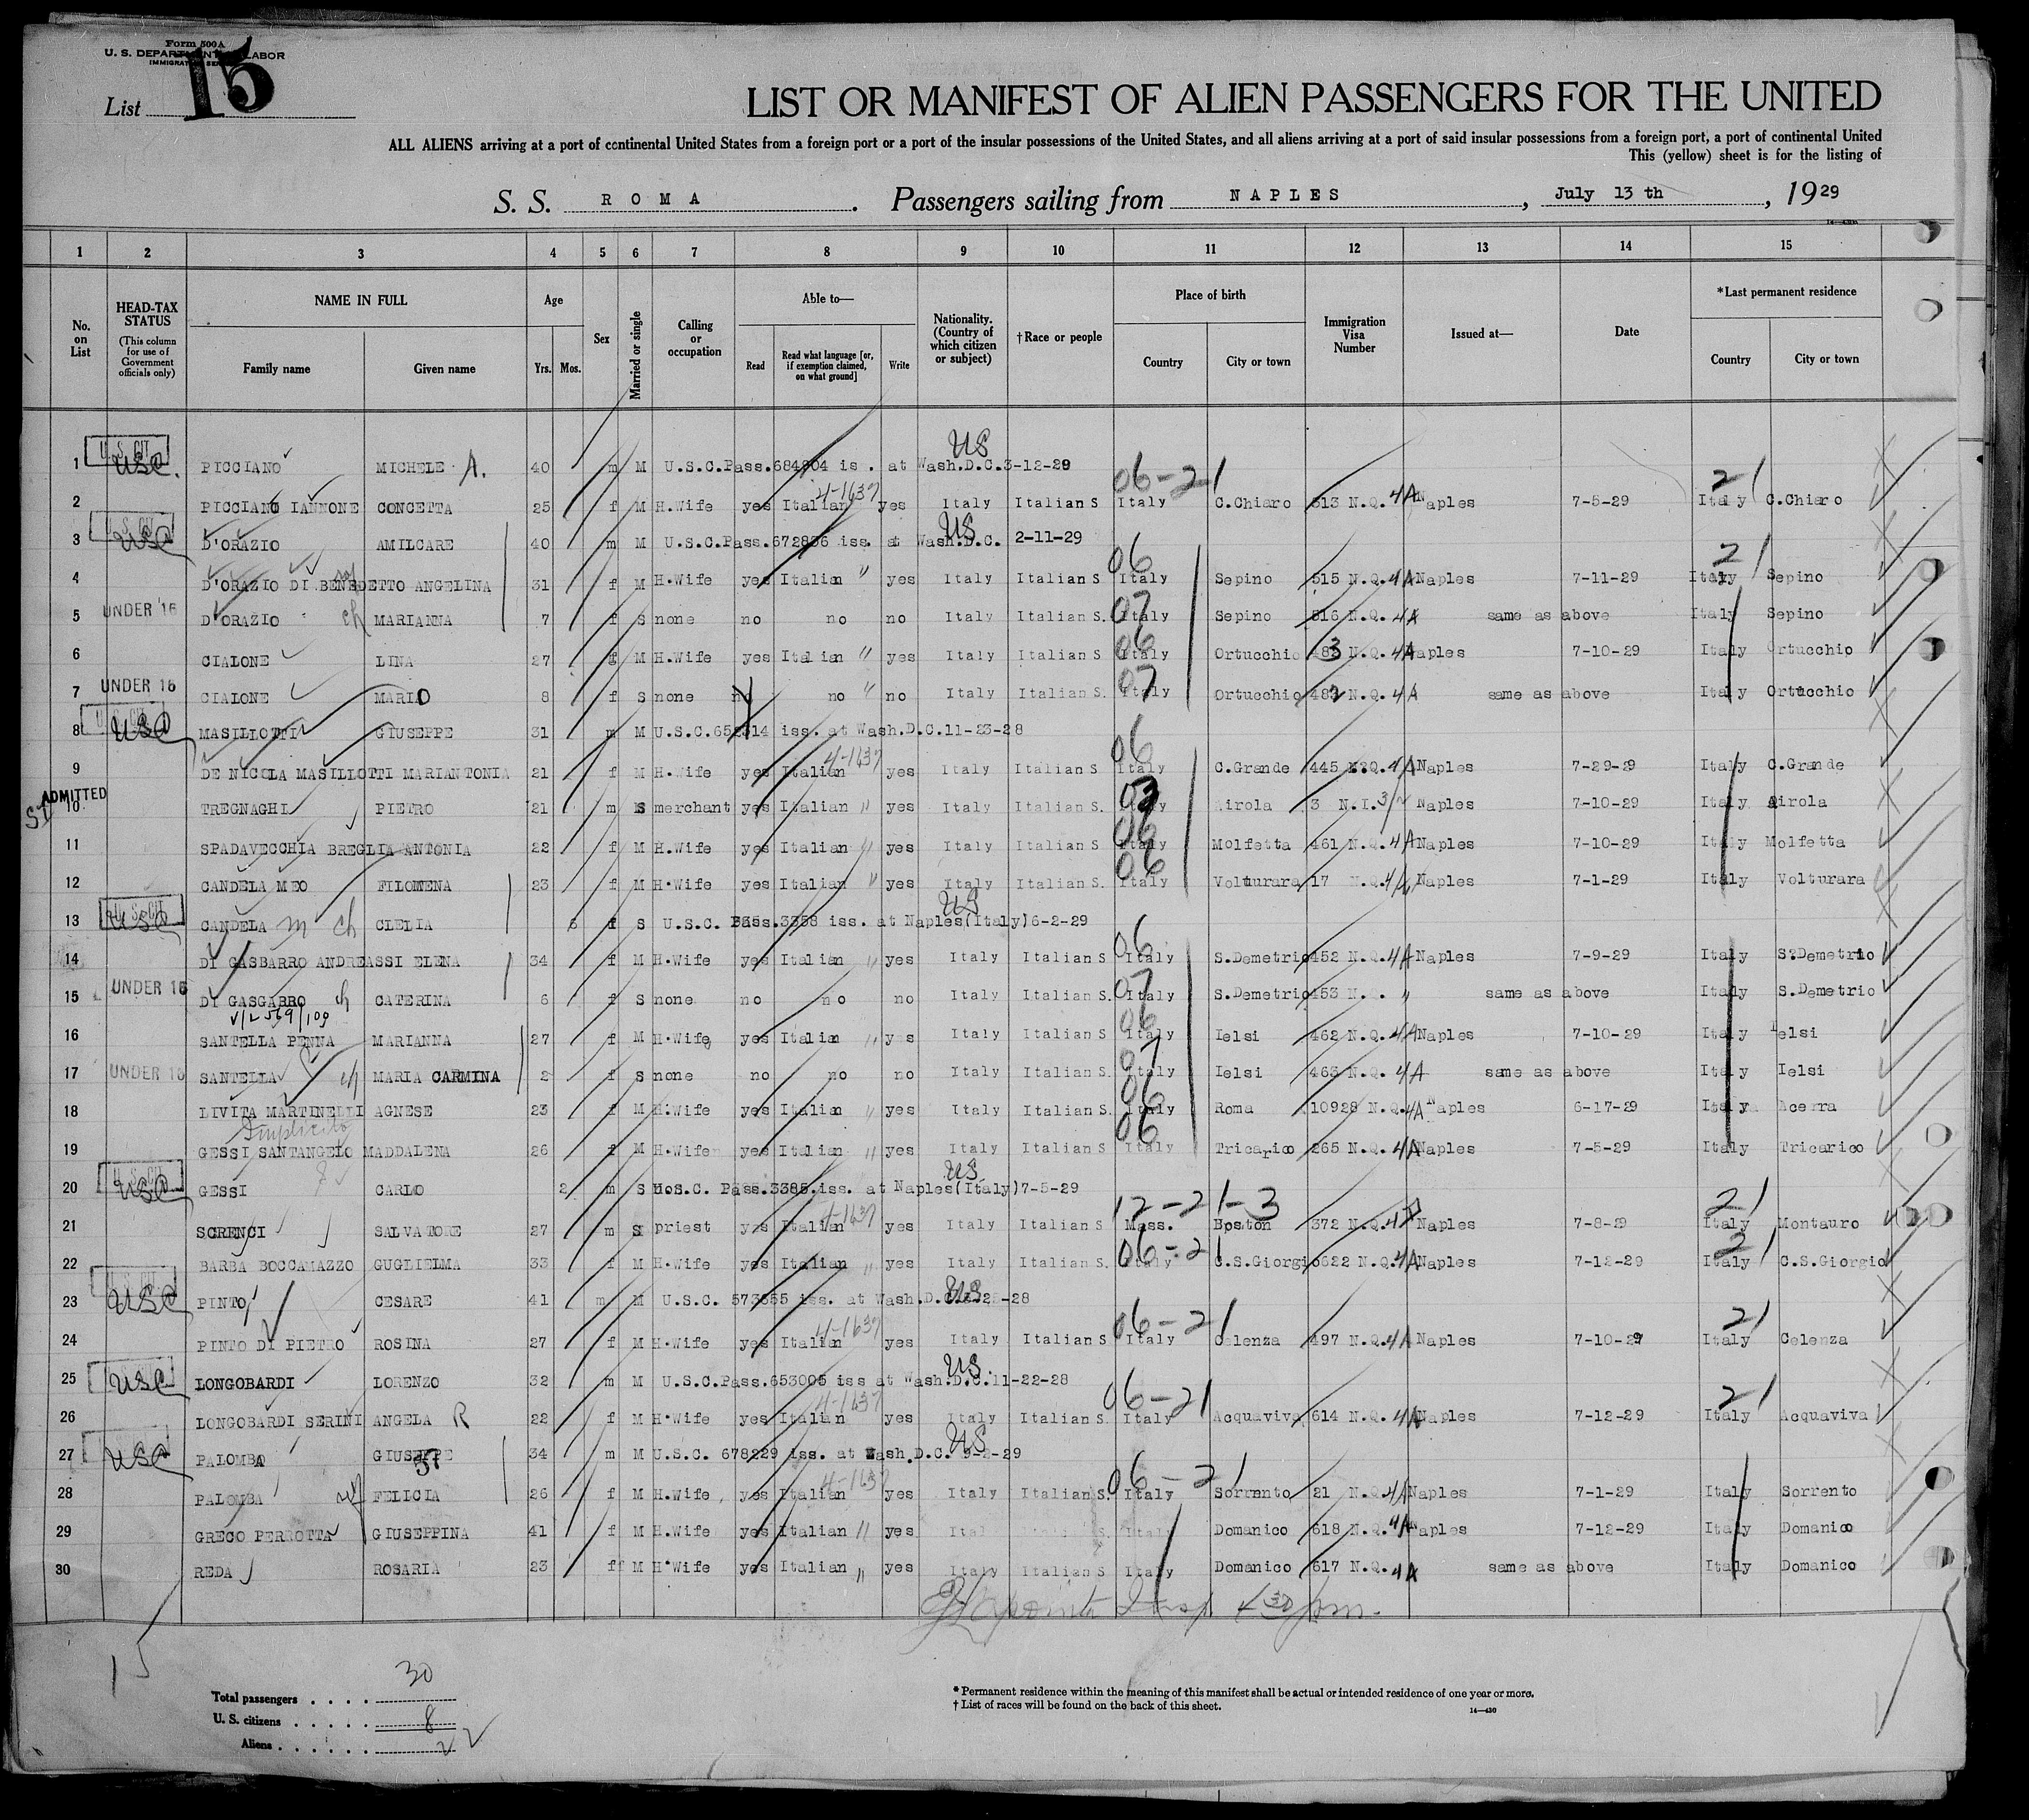 Form 500 A
U. S. DEPARTMENT LABOR
List 15
LIST OR MANIFEST OF ALIEN PASSENGERS FOR THE UNITED
ALL ALIENS arriving at a port of continental United States from a foreign port or a port of the insular possessions of the United States, and all aliens arriving at a port of said insular possessions from a foreign port, a port of continental United
This (yellow) sheet is for the listing of
S. S. ROMA. Passengers sailing from NAPLES, July 13 th, 1929
1 2 3 4 5 6 7 8 9 10 11 12 13 14 15
No. on List HEAD-TAX STATUS (This column for use of Government officials only) NAME IN FULL Family name Given name Age Yrs. Mos. Sex Married or single Calling or occupation Able to— Read Read what language [or, if exemption claimed, on what ground] Write Nationality. (Country of which citizen or subject) †Race or people Place of birth Country City or town Immigration Visa Number Issued at— Date *Last permanent residence Country City or town
1 U.S. CIT USC. PICCIANO MICHELE A. 40 m M U.S.C.Pass.684804 is. at Wash.D.C.3-12-29 US
2 PICCIANO IANNONE CONCETTA 25 f M H.Wife yes Italian 4-1637 yes Italy Italian S 06-21 Italy C.Chiaro 513 N.Q. 4A Naples 7-5-29 21 Italy C.Chiaro
3 U.S. CIT USC D'ORAZIO AMILCARE 40 m M U.S.C.Pass.672896 iss. at Wash.D.C. 2-11-29 US
4 D'ORAZIO DI BENEDETTO ANGELINA 31 f M H.Wife yes Italian " yes Italy Italian S 06 Italy Sepino 515 N.Q. 4A Naples 7-11-29 21 Italy Sepino
5 UNDER 16 D'ORAZIO ch MARIANNA 7 f S none no no no Italy Italian S. 07 Italy Sepino 516 N.Q. 4A same as above Italy Sepino
6 CIALONE LINA 27 f M H.Wife yes Italian " yes Italy Italian S 06 Italy Ortucchio 483 N.Q. 4A Naples 7-10-29 Italy Ortucchio
7 UNDER 16 CIALONE MARIO 8 f S none no no " no Italy Italian S. 07 Italy Ortucchio 482 N.Q. 4A same as above Italy Ortucchio
8 USC MASILLOTTI GIUSEPPE 31 m M U.S.C.652314 iss. at Wash.D.C.11-23-28
9 DE NICOLA MASILLOTTI MARIANTONIA 21 f M H.Wife yes Italian 4-1637 yes Italy Italian S 06 Italy C.Grande 445 N.Q. 4A Naples 7-29-29 Italy C.Grande
10 ADMITTED TREGNAGHI PIETRO 21 m S merchant yes Italian " yes Italy Italian S. 03 Italy Airola 3 N.I. 3/2 Naples 7-10-29 Italy Airola
11 SPADAVECCHIA BREGLIA ANTONIA 22 f M H.Wife yes Italian " yes Italy Italian S 06 Italy Molfetta 461 N.Q. 4A Naples 7-10-29 Italy Molfetta
12 CANDELA MEO FILOMENA 23 f M H.Wife yes Italian " yes Italy Italian S. 06 Italy Volturara 17 N.Q. 4A Naples 7-1-29 Italy Volturara
13 U.S. CIT USC CANDELA m ch CLELIA 6 f S U.S.C. Pass.3358 iss. at Naples(Italy)6-2-29 US
14 DI GASBARRO ANDREASSI ELENA 34 f M H.Wife yes Italian " yes Italy Italian S 06 Italy S.Demetrio 452 N.Q. 4A Naples 7-9-29 Italy S.Demetrio
15 UNDER 16 DI GASGARRO ch CATERINA 6 f S none no no no Italy Italian S. 07 Italy S.Demetrio 453 N. " same as above Italy S.Demetrio
16 SANTELLA PENNA MARIANNA 27 f M H.Wife yes Italian " yes Italy Italian S 06 Italy Ielsi 462 N.Q. 4A Naples 7-10-29 Italy Ielsi
17 UNDER 16 SANTELLA ch MARIA CARMINA 2 f S none no no no Italy Italian S. 07 Italy Ielsi 463 N.Q. 4A same as above Italy Ielsi
18 LIVITA MARTINELLI AGNESE 23 f M H.Wife yes Italian " yes Italy Italian S. 06 Italy Roma 10928 N.Q. 4A Naples 6-17-29 Italy Acerra
19 GESSI SANTANGELO MADDALENA 26 f M H.Wife yes Italian " yes Italy Italian S 06 Italy Tricarico 265 N.Q. 4A Naples 7-5-29 Italy Tricarico
20 U.S. CIT USC GESSI CARLO 2 m S U.S.C. Pass.3385.iss. at Naples(Italy)7-5-29 US
21 SCRENCI SALVATORE 27 m S priest yes Italian 4-1637 yes Italy Italian S 12-21-3 Mass. Boston 372 N.Q. Naples 7-8-29 21 Italy Montauro
22 BARBA BOCCAMAZZO GUGLIELMA 33 f M H.Wife yes Italian " yes Italy Italian S. 06-21 Italy C.S.Giorgio 622 N.Q. 4A Naples 7-12-29 21 Italy C.S.Giorgio
23 USC PINTO CESARE 41 m M U.S.C. 573655 iss. at Wash.D.C. -28 US
24 PINTO DI PIETRO ROSINA 27 f M H.Wife yes Italian 4-1637 yes Italy Italian S 06-21 Italy Celenza 497 N.Q. 4A Naples 7-10-29 21 Italy Celenza
25 USC LONGOBARDI LORENZO 32 m M U.S.C.Pass.653005 iss at Wash.D.C.11-22-28 US.
26 LONGOBARDI SERINI ANGELA R 22 f M H.Wife yes Italian 4-1637 yes Italy Italian S. 06-21 Italy Acquaviva 614 N.Q. 4A Naples 7-12-29 21 Italy Acquaviva
27 USC PALOMBA GIUSEPPE 34 m M U.S.C. 678229 iss. at Wash.D.C. 9- -29 US
28 PALOMBA wf FELICIA 26 f M H.Wife yes Italian 4-1637 yes Italy Italian S. 06-21 Italy Sorrento 21 N.Q. 4A Naples 7-1-29 Italy Sorrento
29 GRECO PERROTTA GIUSEPPINA 41 f M H.Wife yes Italian " yes Ital S. Ital Domanico 618 N.Q. 4A Naples 7-12-29 Italy Domanico
30 REDA ROSARIA 23 ff M H.Wife yes Italian " yes Italy Italian S Italy Domanico 617 N.Q. 4A same as above Italy Domanico
Insp 4 30 pm.
15
Total passengers . . . . 30
U. S. citizens . . . . . 8
Aliens . . . . . . 22
* Permanent residence within the meaning of this manifest shall be actual or intended residence of one year or more.
† List of races will be found on the back of this sheet.
14—430